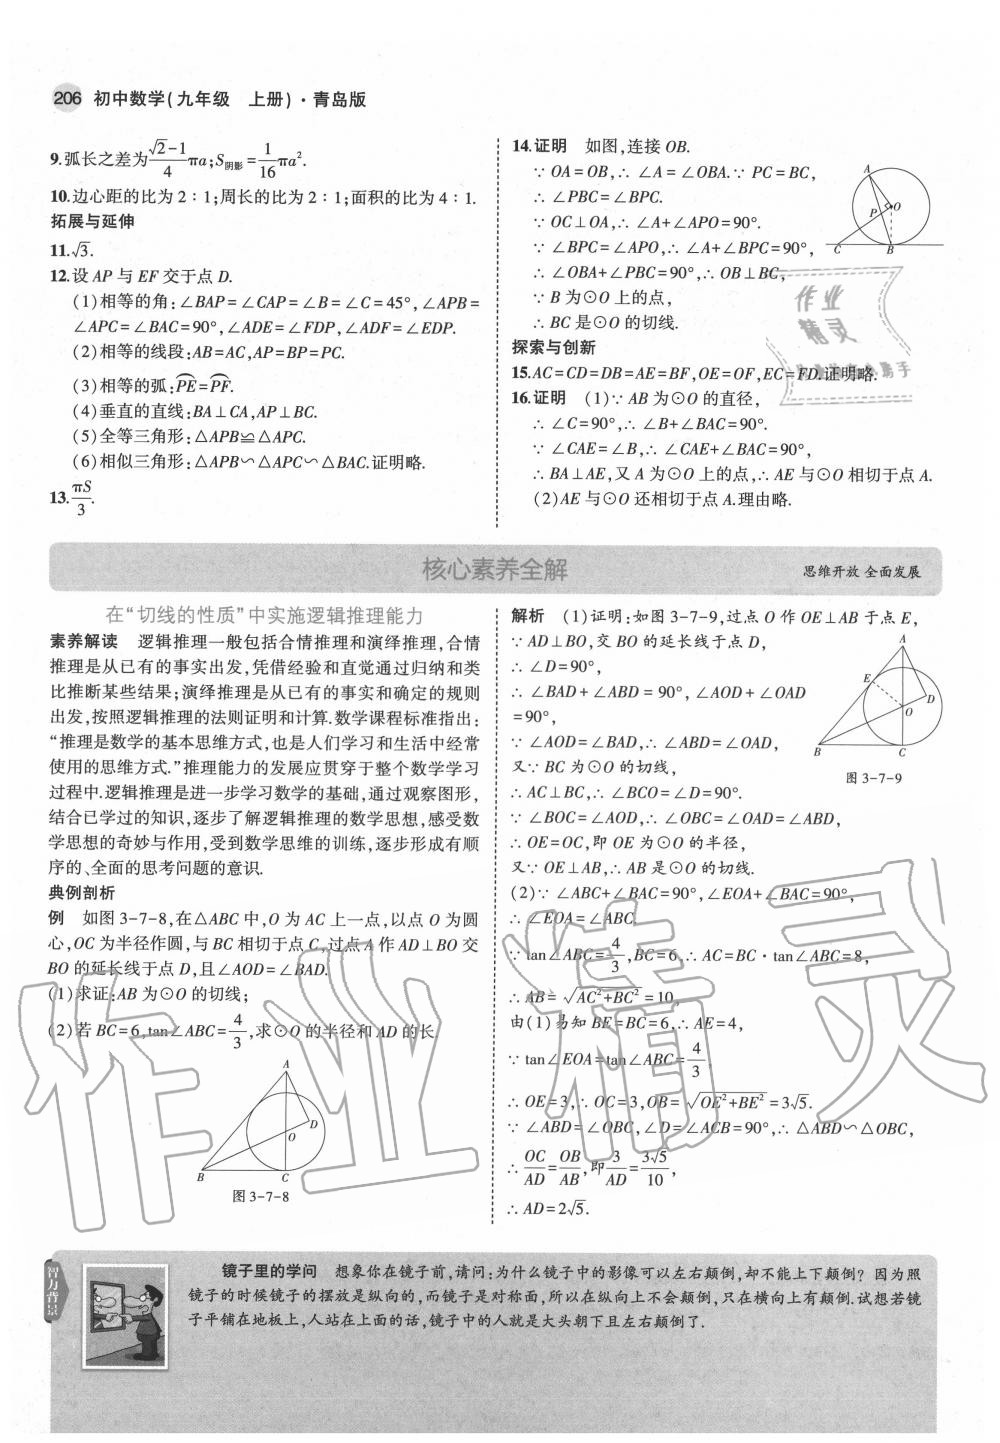 206 初中数学(九年级 上册)·青岛版
9.弧长之差为(√2-1)/4 πa;S阴影=1/16 πa².
10.边心距的比为2∶1;周长的比为2∶1;面积的比为4∶1.
拓展与延伸
11.√3.
12.设AP与EF交于点D.
(1)相等的角:∠BAP=∠CAP=∠B=∠C=45°,∠APB=
∠APC=∠BAC=90°,∠ADE=∠FDP,∠ADF=∠EDP.
(2)相等的线段:AB=AC,AP=BP=PC.
(3)相等的弧:P͡E=P͡F.
(4)垂直的直线:BA⊥CA,AP⊥BC.
(5)全等三角形:△APB≌△APC.
(6)相似三角形:△APB∽△APC∽△BAC.证明略.
13.πS/3.
14.证明 如图,连接OB.
∵OA=OB,∴∠A=∠OBA.∵PC=BC,
∴∠PBC=∠BPC.
∵OC⊥OA,∴∠A+∠APO=90°.
∵∠BPC=∠APO,∴∠A+∠BPC=90°,
∴∠OBA+∠PBC=90°,∴OB⊥BC,
∵B为⊙O上的点,
∴BC是⊙O的切线.
A
P
O
C
B
探索与创新
15.AC=CD=DB=AE=BF,OE=OF,EC=FD.证明略.
16.证明 (1)∵AB为⊙O的直径,
∴∠C=90°,∴∠B+∠BAC=90°.
∵∠CAE=∠B,∴∠CAE+∠BAC=90°,
∴BA⊥AE,又A为⊙O上的点,∴AE与⊙O相切于点A.
(2)AE与⊙O还相切于点A.理由略.
作业
精灵
核心素养全解
思维开放 全面发展
在“切线的性质”中实施逻辑推理能力
素养解读 逻辑推理一般包括合情推理和演绎推理,合情
推理是从已有的事实出发,凭借经验和直觉通过归纳和类
比推断某些结果;演绎推理是从已有的事实和确定的规则
出发,按照逻辑推理的法则证明和计算.数学课程标准指出:
“推理是数学的基本思维方式,也是人们学习和生活中经常
使用的思维方式.”推理能力的发展应贯穿于整个数学学习
过程中.逻辑推理是进一步学习数学的基础,通过观察图形,
结合已学过的知识,逐步了解逻辑推理的数学思想,感受数
学思想的奇妙与作用,受到数学思维的训练,逐步形成有顺
序的、全面的思考问题的意识.
典例剖析
例 如图3-7-8,在△ABC中,O为AC上一点,以点O为圆
心,OC为半径作圆,与BC相切于点C,过点A作AD⊥BO交
BO的延长线于点D,且∠AOD=∠BAD.
(1)求证:AB为⊙O的切线;
(2)若BC=6,tan∠ABC=4/3,求⊙O的半径和AD的长.
A
D
O
B
C
图3-7-8
解析 (1)证明:如图3-7-9,过点O作OE⊥AB于点E,
∵AD⊥BO,交BO的延长线于点D,
∴∠D=90°,
∴∠BAD+∠ABD=90°,∠AOD+∠OAD
=90°,
∵∠AOD=∠BAD,∴∠ABD=∠OAD,
又∵BC为⊙O的切线,
∴AC⊥BC,∴∠BCO=∠D=90°.
∵∠BOC=∠AOD,∴∠OBC=∠OAD=∠ABD,
∴OE=OC,即OE为⊙O的半径,
又∵OE⊥AB,∴AB是⊙O的切线.
(2)∵∠ABC+∠BAC=90°,∠EOA+∠BAC=90°,
∴∠EOA=∠ABC.
∵tan∠ABC=4/3,BC=6,∴AC=BC·tan∠ABC=8,
∴AB=√(AC²+BC²)=10,
由(1)易知BE=BC=6,∴AE=4,
∵tan∠EOA=tan∠ABC=4/3,
∴OE=3,∴OC=3,OB=√(OE²+BE²)=3√5.
∵∠ABD=∠OBC,∠D=∠ACB=90°,∴△ABD∽△OBC,
∴OC/AD=OB/AB,即3/AD=3√5/10,
∴AD=2√5.
A
E
D
O
B
C
图3-7-9
作业精灵
智力背景
镜子里的学问 想象你在镜子前,请问:为什么镜子中的影像可以左右颠倒,却不能上下颠倒?因为照
镜子的时候镜子的摆放是纵向的,而镜子是对称面,所以在纵向上不会颠倒,只在横向上有颠倒.试想若镜
子平铺在地板上,人站在上面的话,镜子中的人就是大头朝下且左右颠倒了.